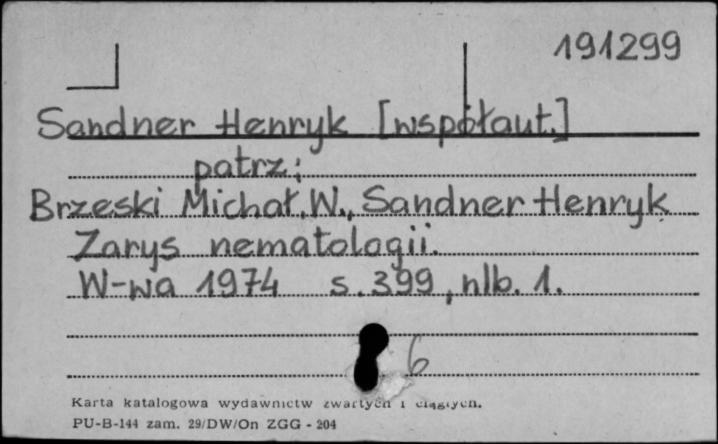 191299
Sandner Henryk [współaut.]
patrz:
Brzeski Michał.W., Sandner Henryk
Zarys nematologii.
W-wa 1974 s.399, nlb. 1.
6
Karta katalogowa wydawnictw zwartych i ciągłych.
PU-B-144 zam. 29/DW/On ZGG - 204